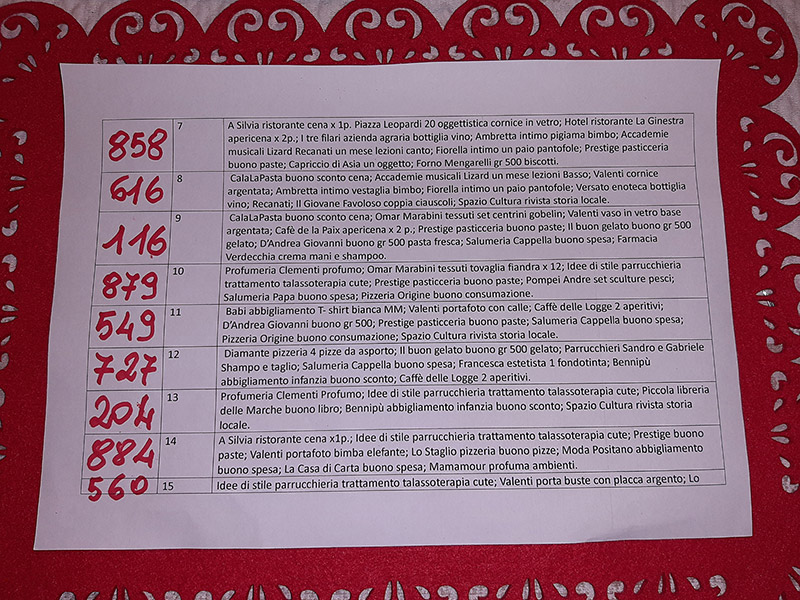 858 7 A Silvia ristorante cena x 1p. Piazza Leopardi 20 oggettistica cornice in vetro; Hotel ristorante La Ginestra
apericena x 2p.; I tre filari azienda agraria bottiglia vino; Ambretta intimo pigiama bimbo; Accademie
musicali Lizard Recanati un mese lezioni canto; Fiorella intimo un paio pantofole; Prestige pasticceria
buono paste; Capriccio di Asia un oggetto; Forno Mengarelli gr 500 biscotti.
616 8 CalaLaPasta buono sconto cena; Accademie musicali Lizard un mese lezioni Basso; Valenti cornice
argentata; Ambretta intimo vestaglia bimbo; Fiorella intimo un paio pantofole; Versato enoteca bottiglia
vino; Recanati; Il Giovane Favoloso coppia ciauscoli; Spazio Cultura rivista storia locale.
116 9 CalaLaPasta buono sconto cena; Omar Marabini tessuti set centrini gobelin; Valenti vaso in vetro base
argentata; Cafè de la Paix apericena x 2 p.; Prestige pasticceria buono paste; Il buon gelato buono gr 500
gelato; D'Andrea Giovanni buono gr 500 pasta fresca; Salumeria Cappella buono spesa; Farmacia
Verdecchia crema mani e shampoo.
879 10 Profumeria Clementi profumo; Omar Marabini tessuti tovaglia fiandra x 12; Idee di stile parrucchieria
trattamento talassoterapia cute; Prestige pasticceria buono paste; Pompei Andre set sculture pesci;
Salumeria Papa buono spesa; Pizzeria Origine buono consumazione.
549 11 Babi abbigliamento T- shirt bianca MM; Valenti portafoto con calle; Caffè delle Logge 2 aperitivi;
D'Andrea Giovanni buono gr 500; Prestige pasticceria buono paste; Salumeria Cappella buono spesa;
Pizzeria Origine buono consumazione; Spazio Cultura rivista storia locale.
727 12 Diamante pizzeria 4 pizze da asporto; Il buon gelato buono gr 500 gelato; Parrucchieri Sandro e Gabriele
Shampo e taglio; Salumeria Cappella buono spesa; Francesca estetista 1 fondotinta; Bennipù
abbigliamento infanzia buono sconto; Caffè delle Logge 2 aperitivi.
204 13 Profumeria Clementi Profumo; Idee di stile parrucchieria trattamento talassoterapia cute; Piccola libreria
delle Marche buono libro; Bennipù abbigliamento infanzia buono sconto; Spazio Cultura rivista storia
locale.
884 14 A Silvia ristorante cena x1p.; Idee di stile parrucchieria trattamento talassoterapia cute; Prestige buono
paste; Valenti portafoto bimba elefante; Lo Staglio pizzeria buono pizze; Moda Positano abbigliamento
buono spesa; La Casa di Carta buono spesa; Mamamour profuma ambienti.
560 15 Idee di stile parrucchieria trattamento talassoterapia cute; Valenti porta buste con placca argento; Lo